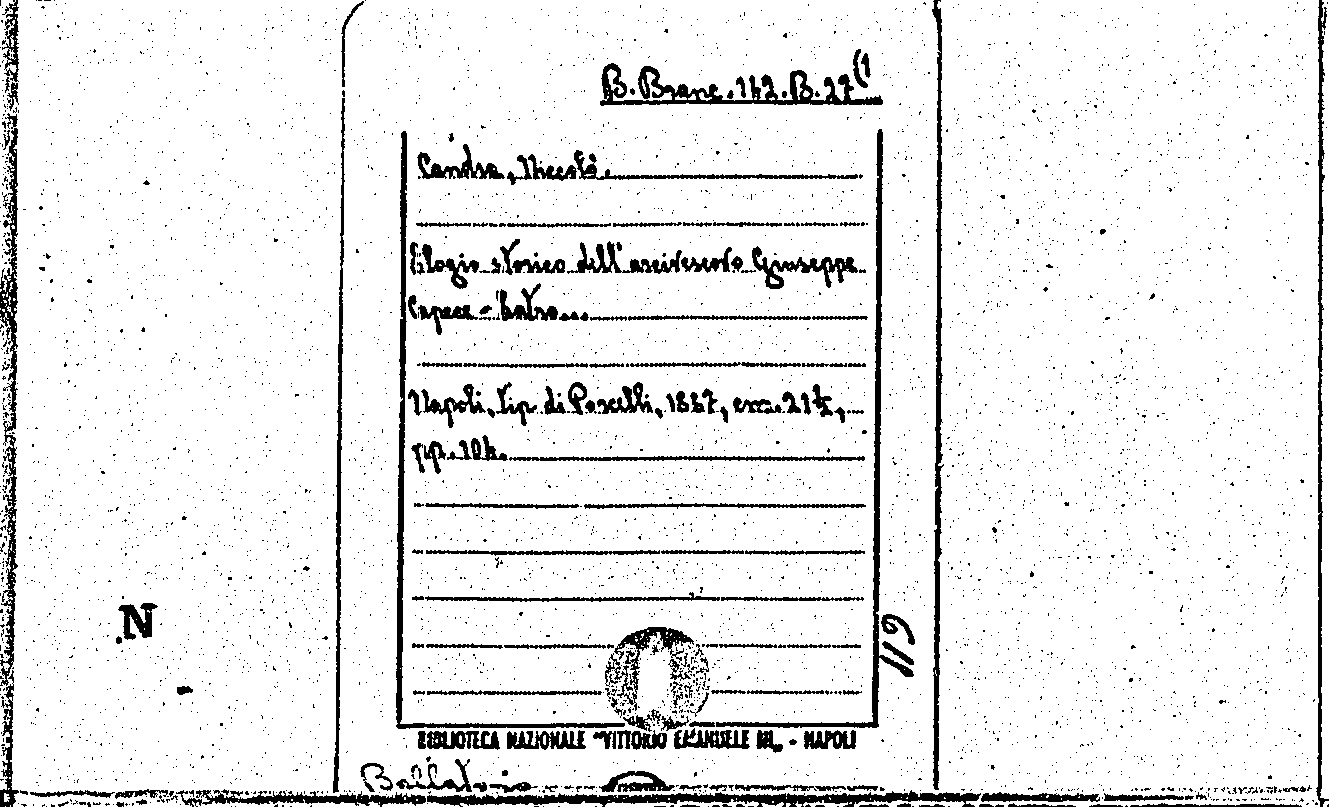 B. Branc. 142. B. 27(1
Candia, Niccolò.
Elogio storico dell'arcivescovo Giuseppe
Capece-Latro...
Napoli, tip. di Porcelli, 1837, cm. 21½,
pp. 104.
119
N
BIBLIOTECA NAZIONALE "VITTORIO EMANUELE III„ - NAPOLI